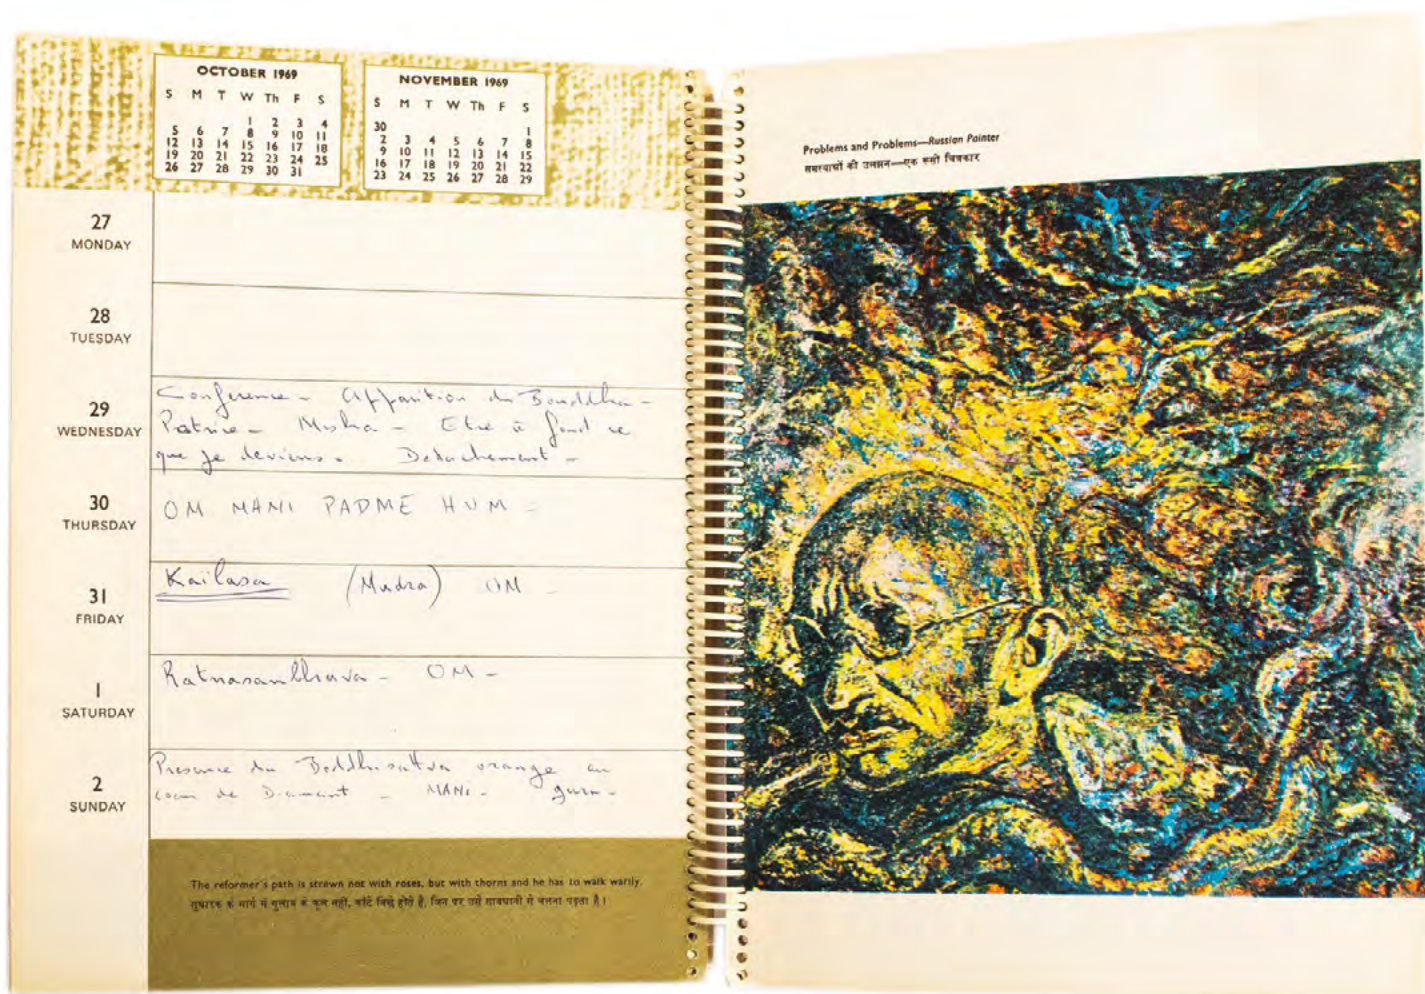 OCTOBER 1969
S M T W Th F S
1 2 3 4
5 6 7 8 9 10 11
12 13 14 15 16 17 18
19 20 21 22 23 24 25
26 27 28 29 30 31
NOVEMBER 1969
S M T W Th F S
30 1
2 3 4 5 6 7 8
9 10 11 12 13 14 15
16 17 18 19 20 21 22
23 24 25 26 27 28 29
27
MONDAY
28
TUESDAY
29
WEDNESDAY
Conference - Apparition du Bouddha -
Patrice - Mishra - Etre à fond ce
que je deviens. Detachement -
30
THURSDAY
OM MANI PADME HUM -
31
FRIDAY
Kailasa (Mudra) OM -
1
SATURDAY
Ratnasambhava - OM -
2
SUNDAY
Presence du Boddhisattva orange au
coeur de Diamant - MANI -
The reformer's path is strewn not with roses, but with thorns and he has to walk warily.
सुधारक के मार्ग में गुलाब के फूल नहीं, काँटे बिछे होते हैं, जिन पर उसे सावधानी से चलना पड़ता है।
Problems and Problems—Russian Painter
समस्याओं की उलझन—एक रूसी चित्रकार